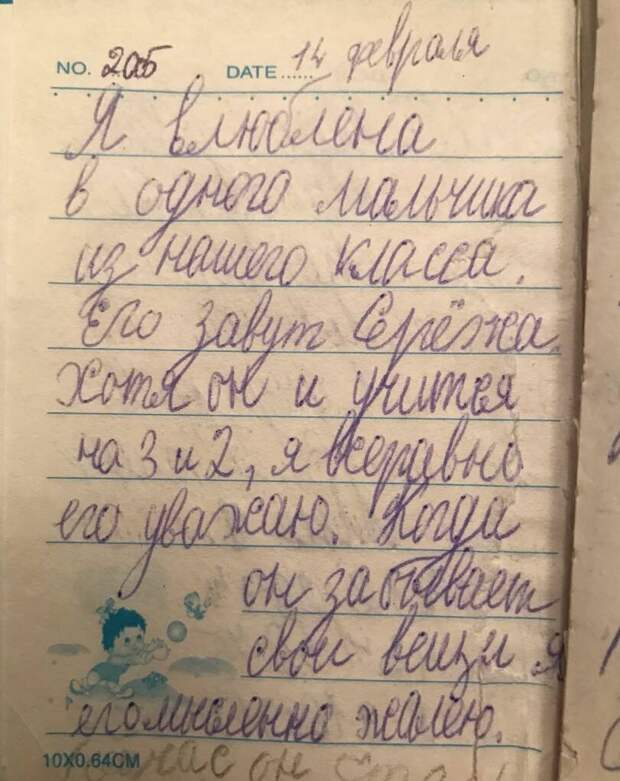 NO. 2005 DATE...... 14 февраля
Я влюблена
в одного мальчика
из нашего класса.
Его завут Серёжа.
хотя он и учится
на 3 и 2, я всеравно
его уважаю. Когда
он забывает
свои вещи я
его мысленно жалею.
час он
10X0.64CM